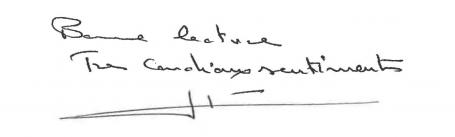 Bonne lecture
Tres Cordiaux sentiments